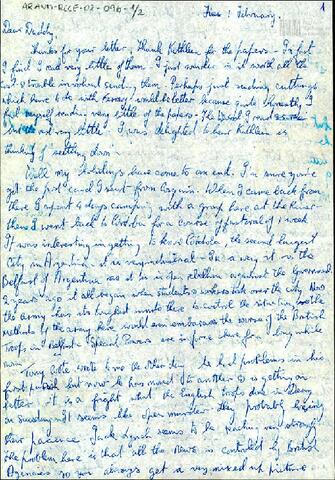 ARAVM-RCCE-02-096-1/2
1
February
Dear Daddy,
Thanks for your letter - thank Kathleen for the papers - In fact
I find I read very little of them - I just wonder is it worth all the
trouble involved sending them. Perhaps just sending cuttings
which have to do with would be better because quite honestly, I
find myself reading very little of the papers - The I read
very little. I was delighted to hear Kathleen is
thinking of settling down -
Well my holidays have come to an end. I'm sure you've
got the post card I sent from Cosquin. When I came back from
there I spent 4 days camping with a group here at the River
then I went back to Cordoba for a course of of 1 week
It was interesting in getting to know Cordoba, the second largest
City in Argentina. it is very industrial - In a way it is the
Belfast of Argentina as it is in open rebellion against the Government
2 years ago it all began when students workers took over the city. Now
the army has its toughest units there to control the situation, but the
methods by the army here would even embarrass the worst of the British
Troops in Belfast. Special Powers are in force here for a long while
now.
Tony Cole wrote to me the other day - he had problems in his
first parish but now he has moved to another & is getting on
better. it is a fright what the English troops did in Derry
on Sunday. It seems like open murder - they probably
their patience. Jack Lynch seems to be reacting very strongly
the problem here is that all the News is controlled by British
Agencies so you always get a very mixed up picture